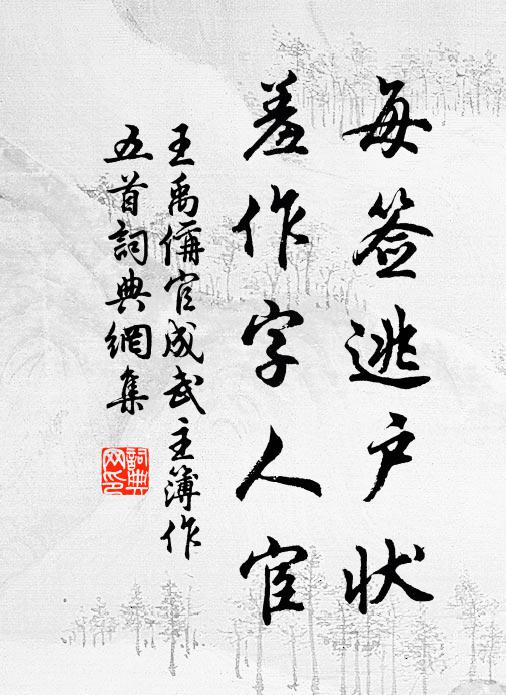 每签逃户状
羞作字人官
王禹偁官成武主簿作
五首詞典網集
詞典
网印